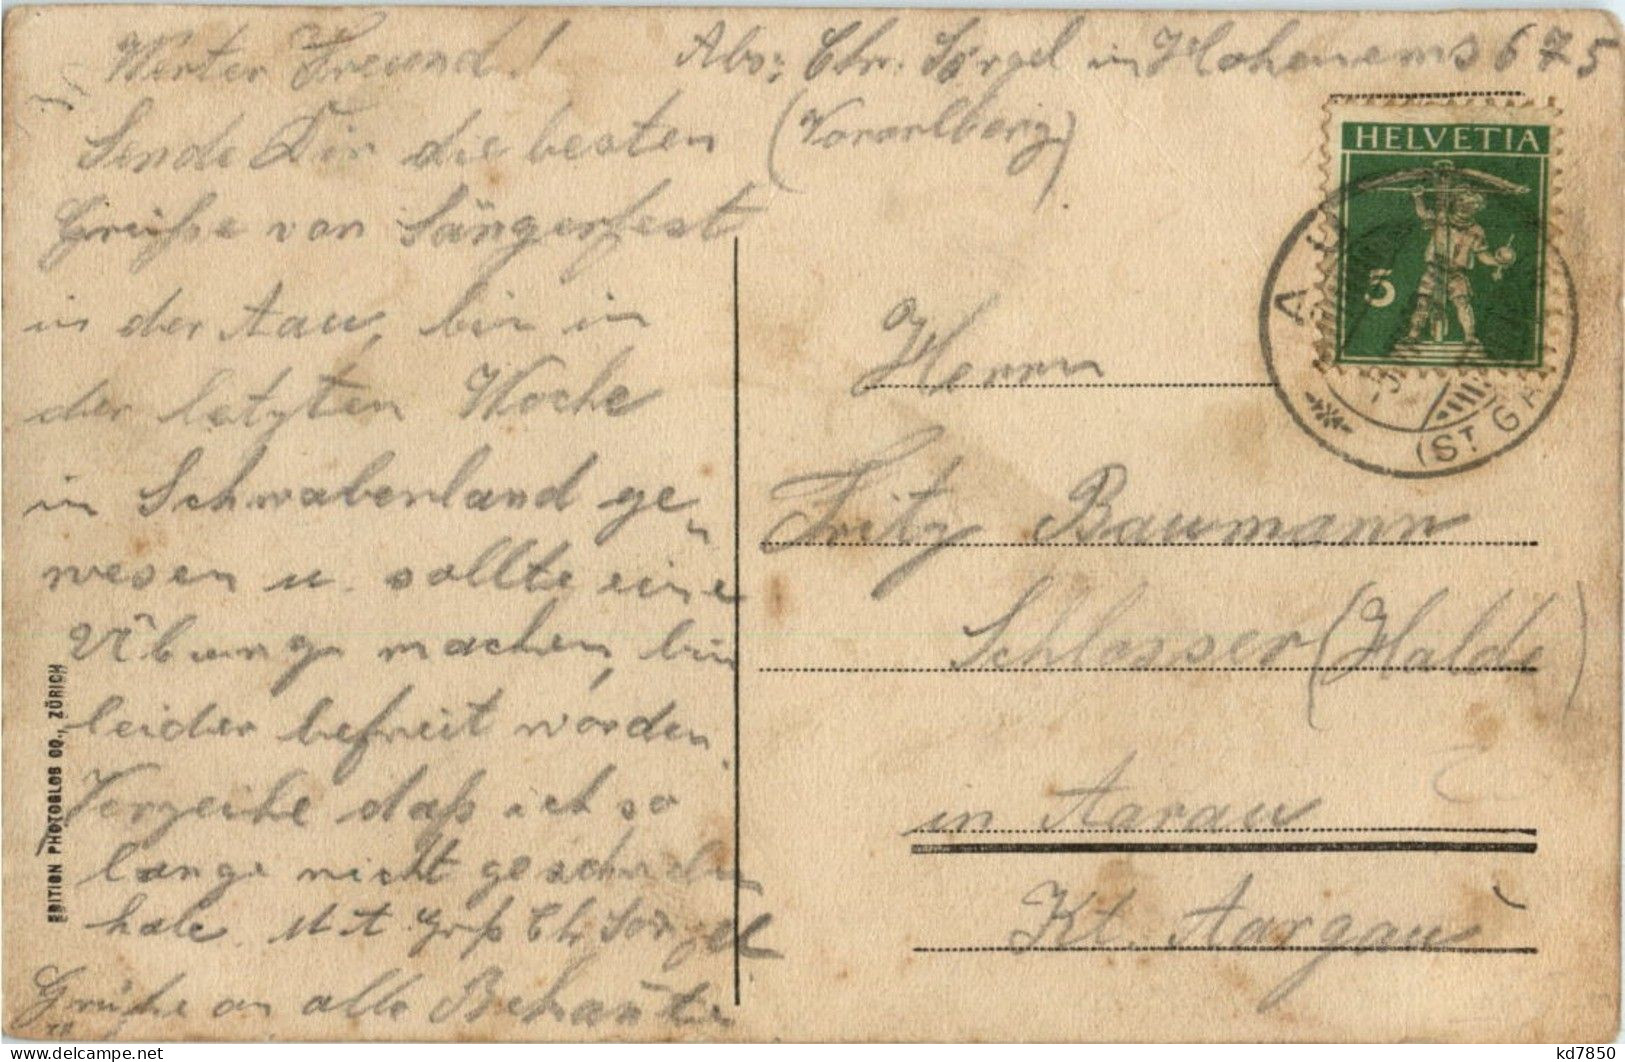 Werter Freund! Abs: Chr. Sörgel in Hohenems 675
(Vorarlberg)
Sende Dir die besten
Grüße von Sängerfest
in der Aau, bin in
der letzten Woche
in Schwabenland ge-
wesen u. sollte eine
Übung machen, bin
leider befreit worden.
Verzeihe daß ich so
lange nicht geschrieben
habe. Mt. Grß Chr Sörgel
Grüße an alle Bekannten
HELVETIA
5
AU
(ST. GA
Herrn
Fritz Baumann
Schlosser (Halde)
in Aarau
Kt. Aargau
EDITION PHOTOGLOB CO., ZÜRICH
delcampe.net
kd7850